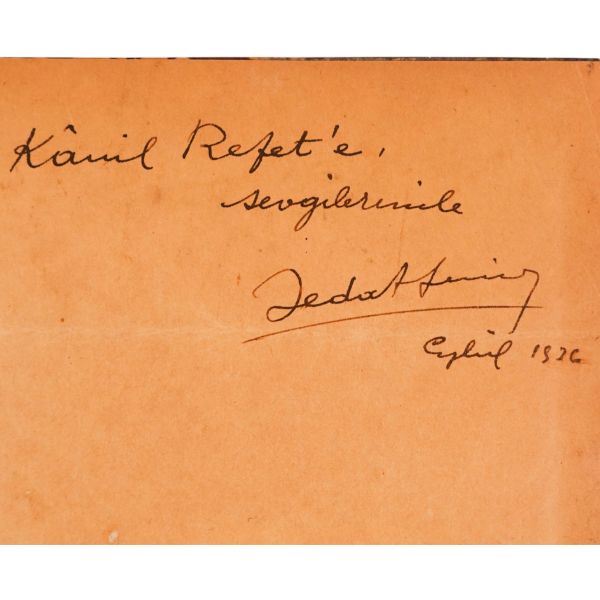 Kâmil Refet'e,
sevgilerimle
Vedat
Eylül 1976